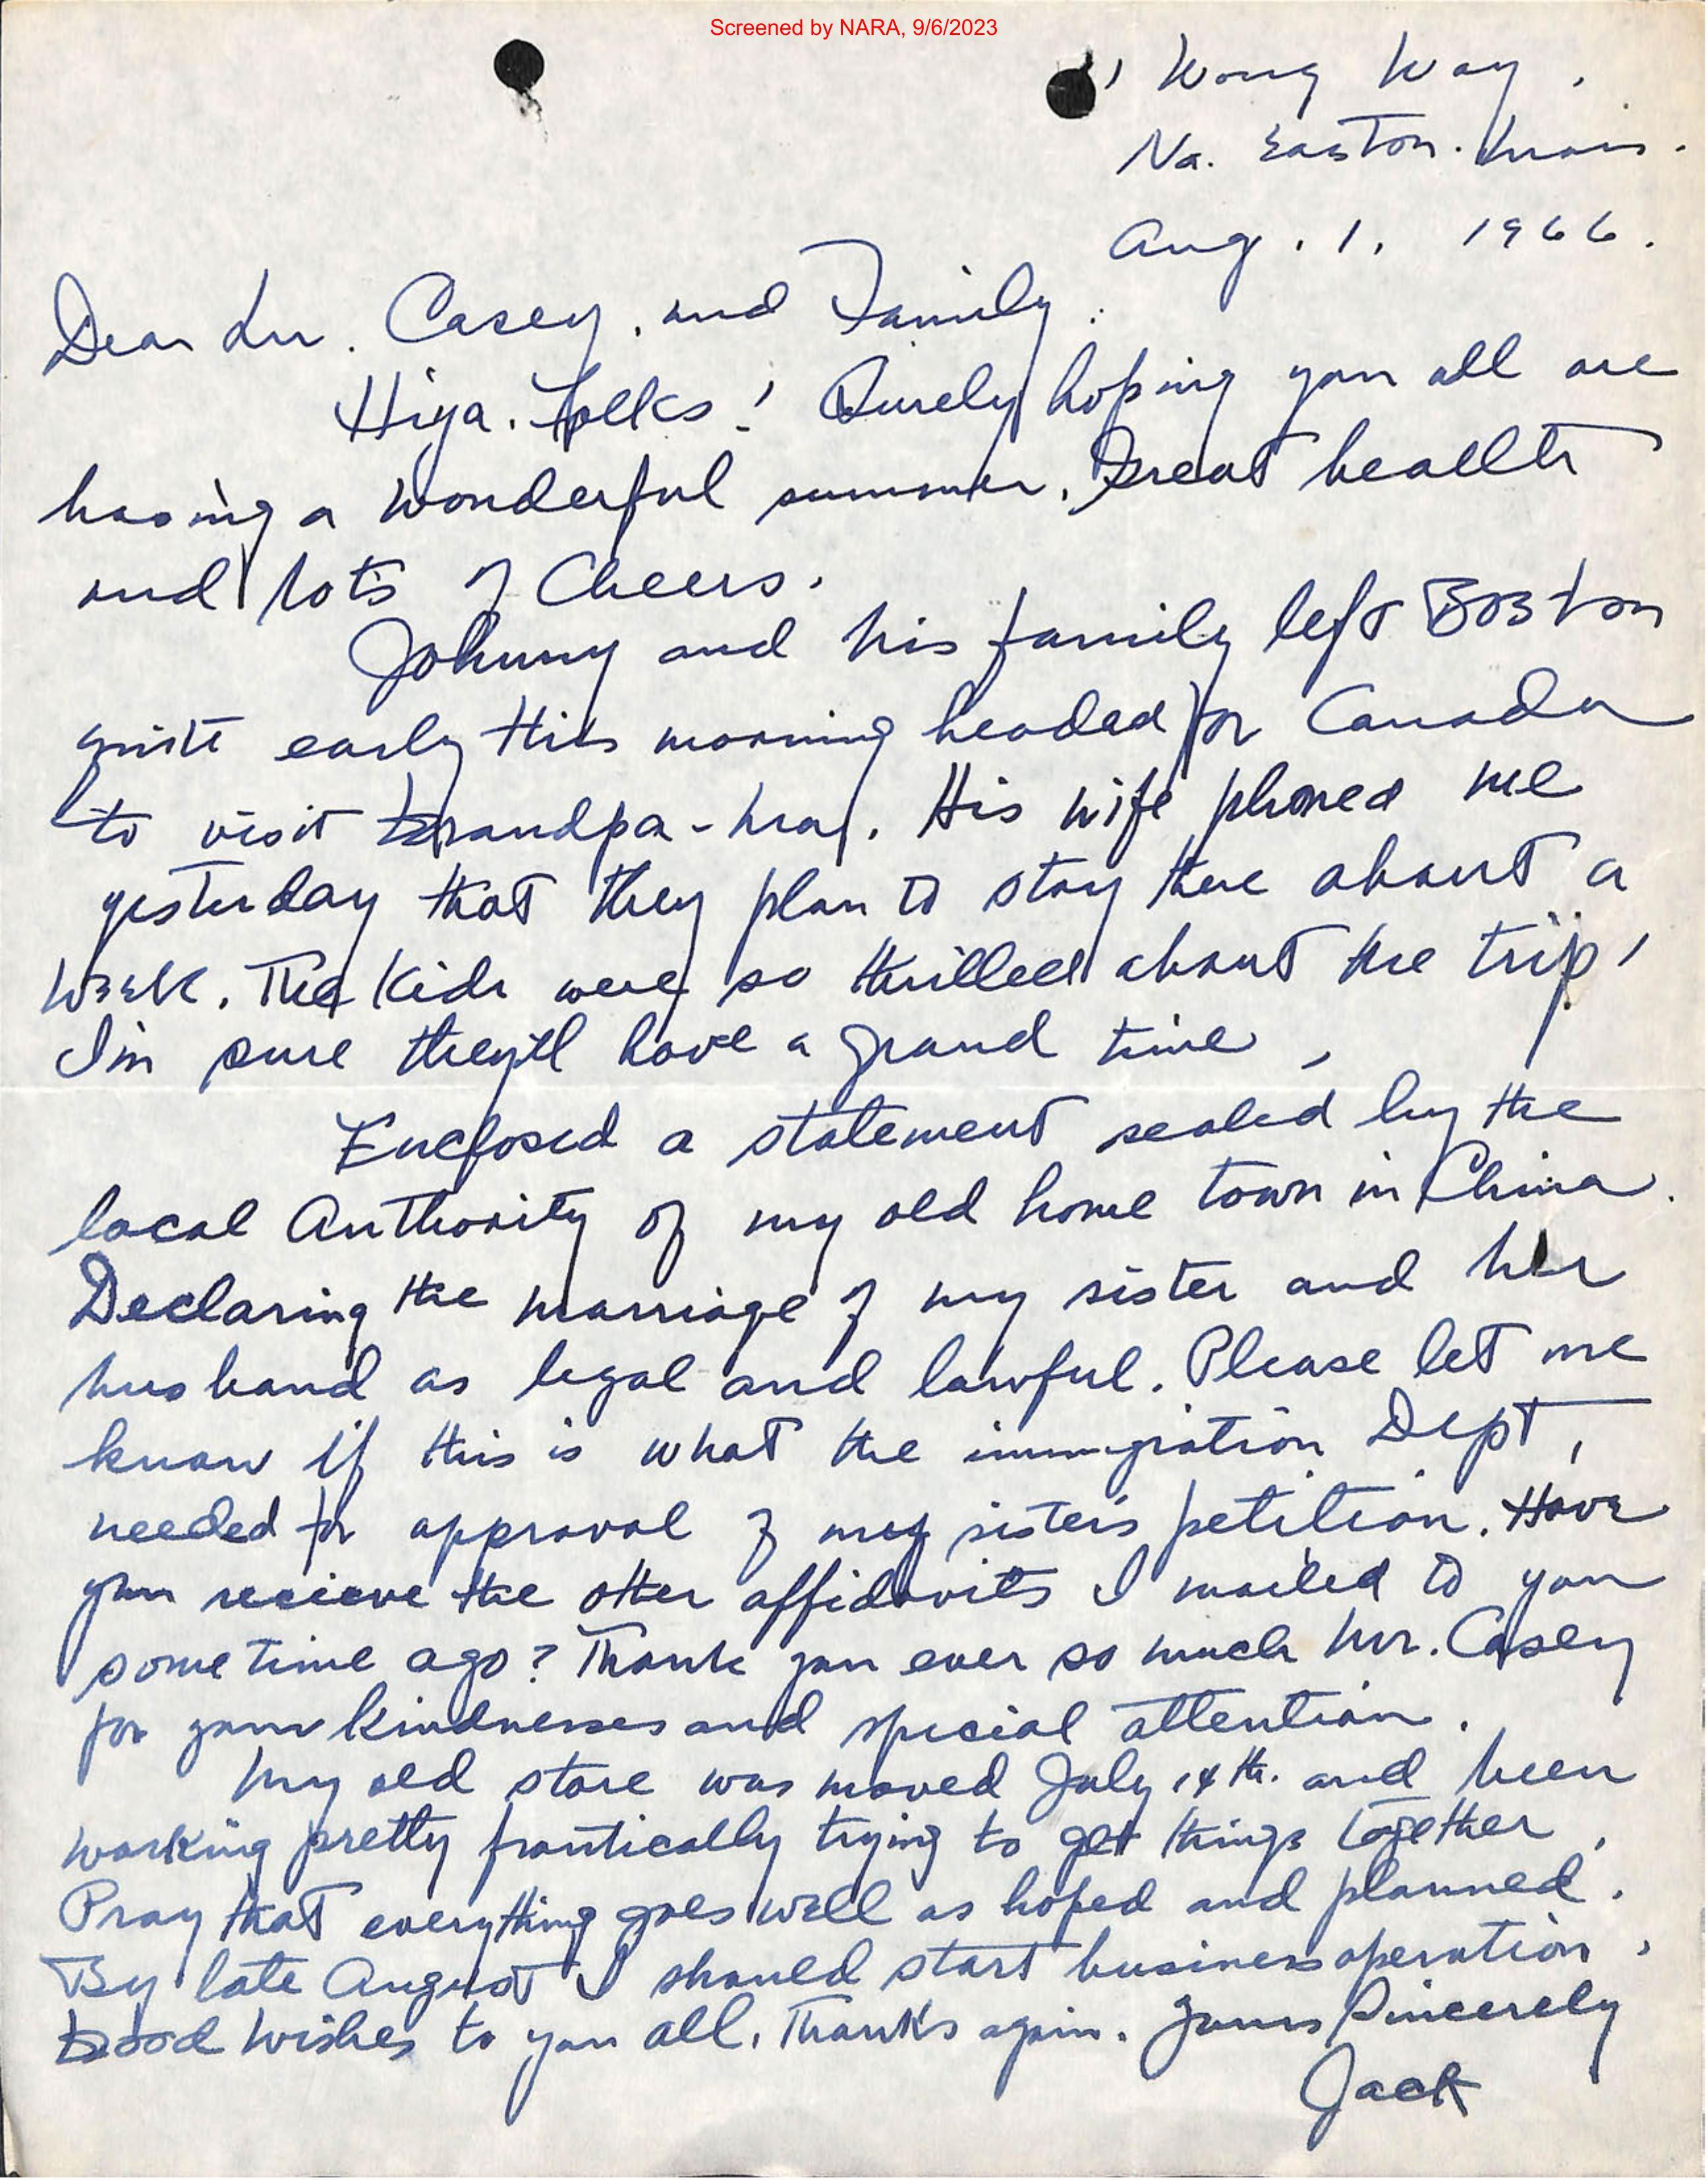 Screened by NARA, 9/6/2023
1 Wong Way.
No. Easton. Mass.
Aug. 1, 1966.
Dear Casey, and Family.
Hiya. Folks! Surely hoping you all are
having a wonderful summer. Great health
and lots of Cheers.
Johnny and his family left Boston
quite early this morning headed for Canada
to visit Grandpa - . His wife phoned me
yesterday that they plan to stay there about a
week. The kids were so thrilled about the trip,
I'm sure they'll have a grand time.
Enclosed a statement sealed by the
local Authority of my old home town in China.
Declaring the marriage of my sister and her
husband as legal and lawful. Please let me
know if this is what the immigration Dept,
needed for approval of my sister's petition. Have
you recieve the other affidavits I mailed to you
some time ago? Thank you ever so much Mr. Casey
for your kindnesses and special attention.
My old store was moved July 14th. and been
working pretty frantically trying to get things together.
Pray that everything goes well as hoped and planned.
By late August I should start business operation.
Good Wishes to you all. Thanks again. Yours Sincerely
Jack